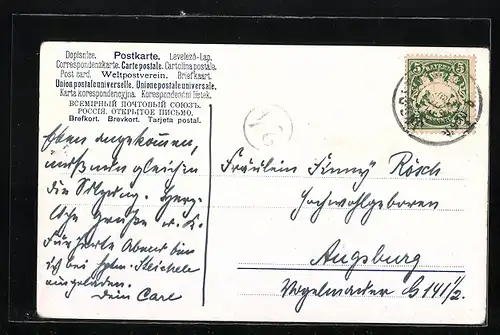 Dopisnice. Postkarte. Levelező-Lap.
Correspondenzkarte. Carte postale. Cartolina postale.
Post card. Weltpostverein. Briefkaart.
Union postale universelle. Unione postale universale.
Karta korespondencyjna. Korespondenční lístek.
ВСЕМІРНЫЙ ПОЧТОВЫЙ СОЮЗЪ.
РОССІЯ. ОТКРЫТОЕ ПИСЬМО.
Brefkort. Brevkort. Tarjeta postal.
angekommen,
gleich in
die Sitzung. Herz-
liche Grüße u. K.
Für heute Abend bin
ich bei
eingeladen.
Dein Carl
5 BAYERN 5
Fräulein "Finny" Rösch
Hochwohlgeboren
Augsburg
G 141/2.